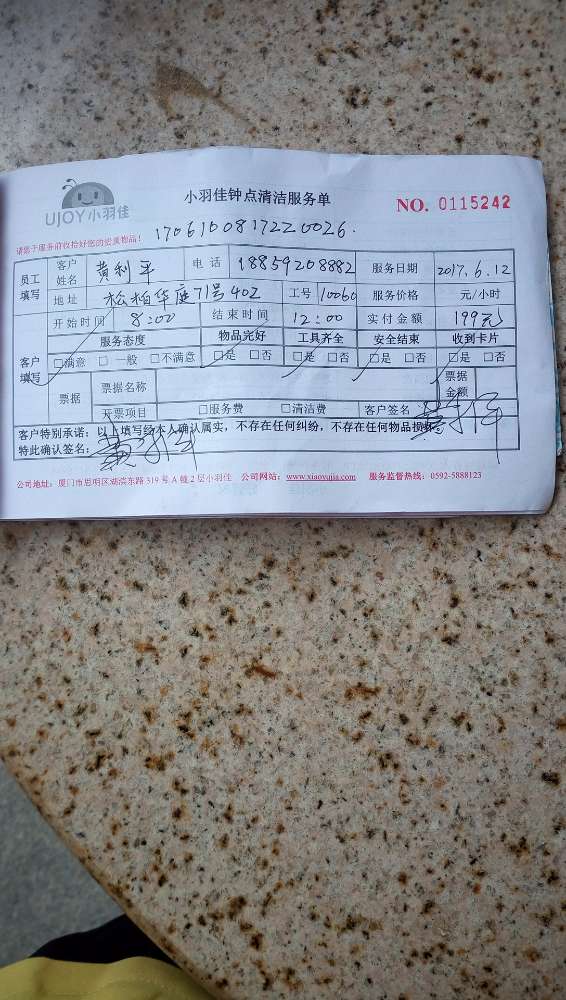 UJOY小羽佳
小羽佳钟点清洁服务单
NO. 0115242
请您于服务前收拾好您的贵重物品!
1706100817220026.
员工填写 客户姓名 黄利平 电话 18859208882 服务日期 2017.6.12
地址 松柏华庭71号402 工号 10060 服务价格 元/小时
开始时间 8:00 结束时间 12:00 实付金额 199元
客户填写 服务态度 物品完好 工具齐全 安全结束 收到卡片
□满意 □一般 □不满意 □是 □否 □是 □否 □是 □否 □是 □否
票据 票据名称 票据金额
开票项目 □服务费 □清洁费 客户签名
客户特别承诺:以上填写经本人确认属实,不存在任何纠纷,不存在任何物品损坏。
特此确认签名:
公司地址:厦门市思明区湖滨东路319号A幢2层小羽佳 公司网站:www.xiaoyujia.com 服务监督热线:0592-5888123